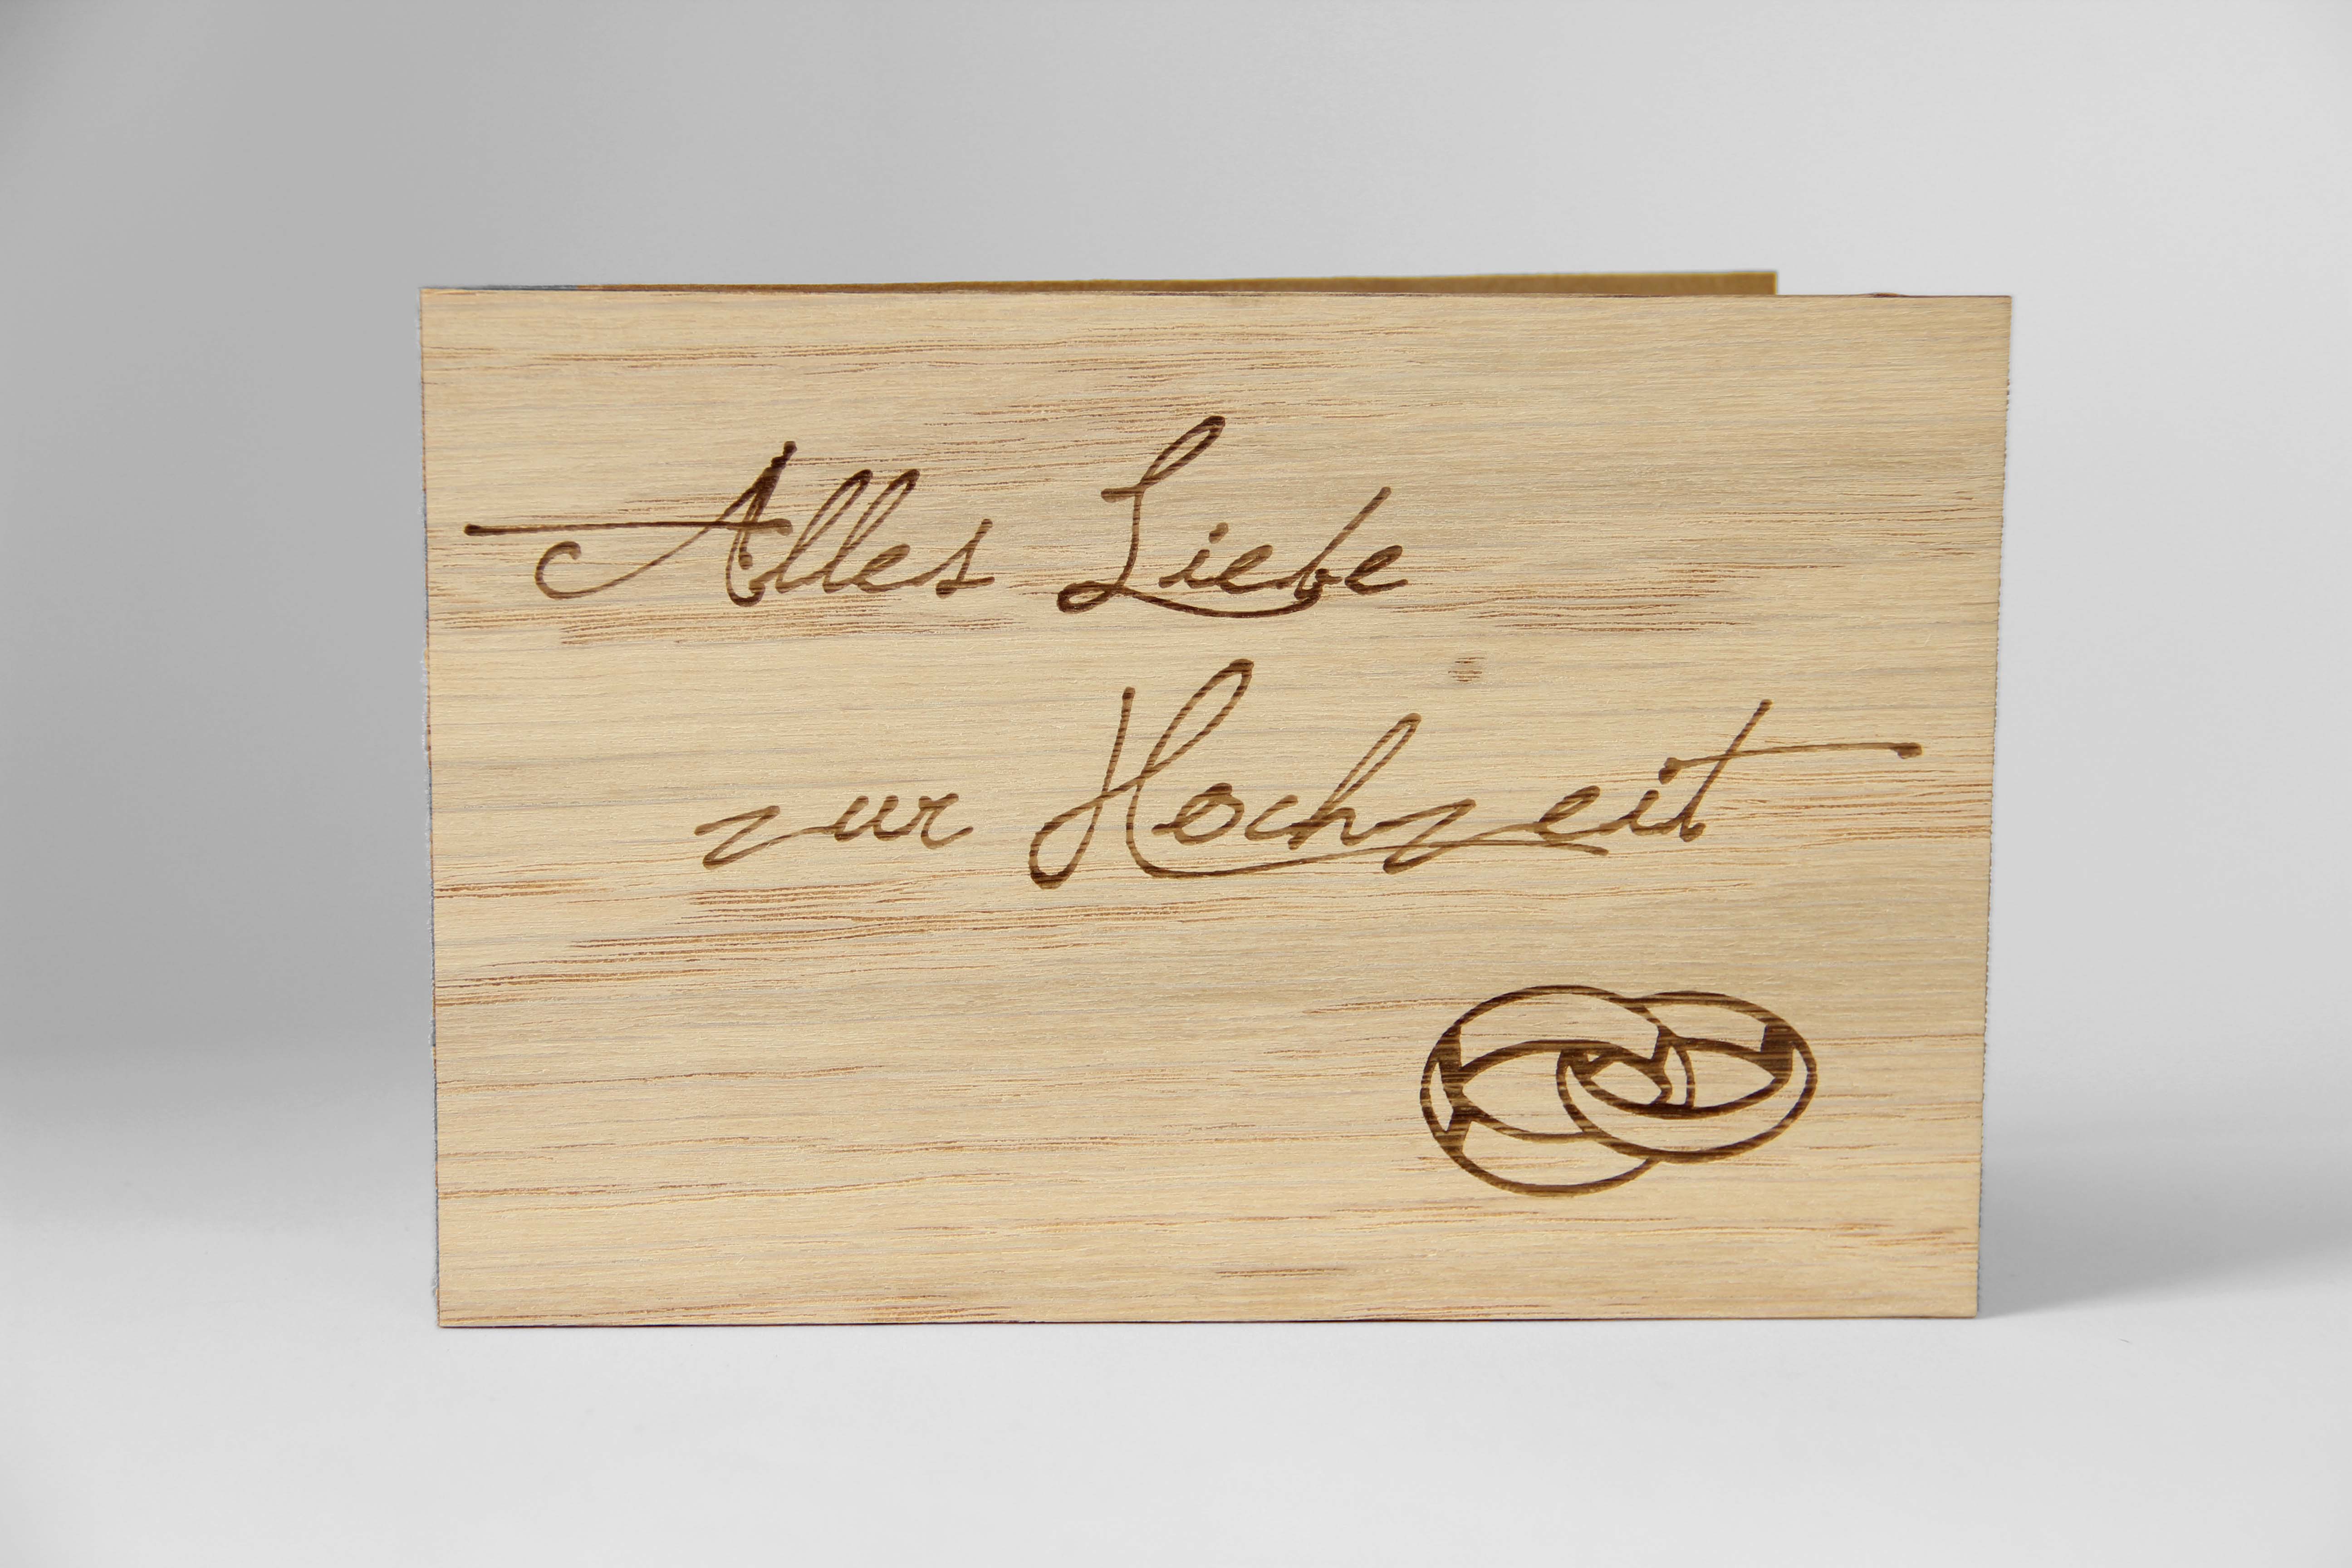 Alles Liebe
zur Hochzeit